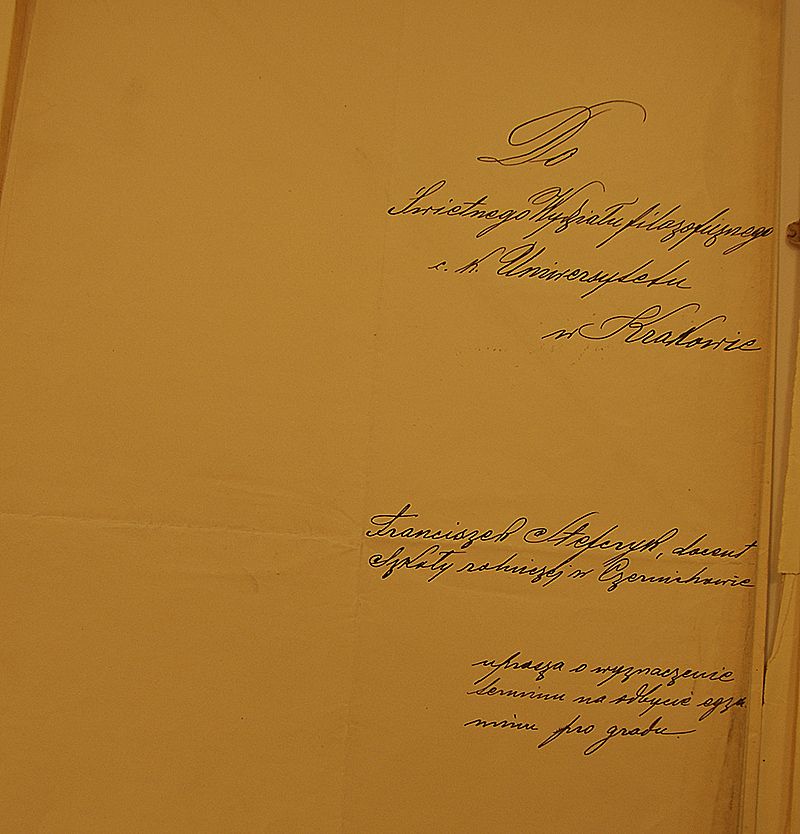 Do
Świetnego Wydziału filozoficznego
c. k. Uniwersytetu
w Krakowie
Franciszek Stefczyk, docent
Szkoły rolniczej w Czernichowie
uprasza o wyznaczenie
terminu na odbycie egza-
minu pro gradu.